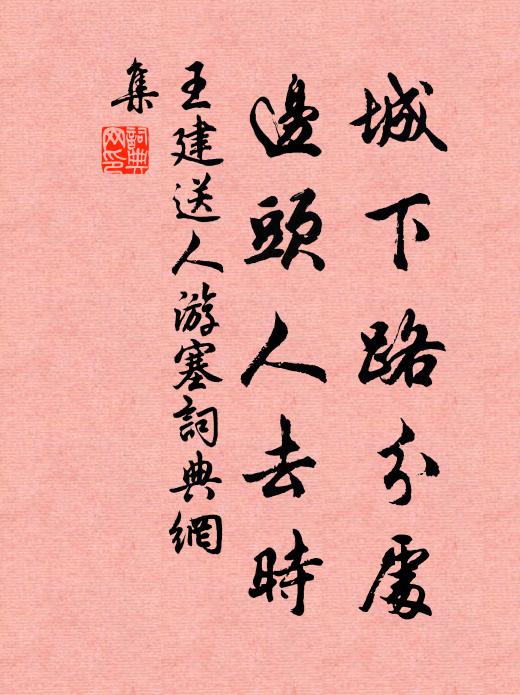 城下路分處
邊頭人去時
王建送人游塞詞典網
集
詞典網印